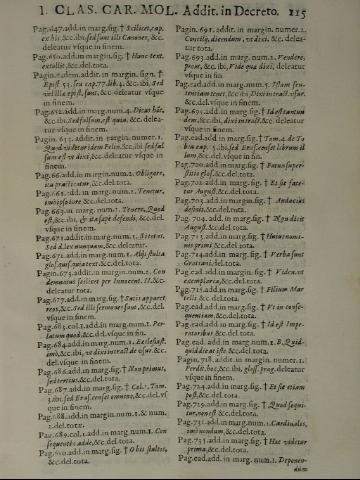 I. CLAS. CAR. MOL. Addit. in Decreto. 215
Pag. 647. add. in marg. sig. † Scilicet, cap.
ex his, &c. ibi, sed sunt illi Canones, &c.
deleatur vsque in finem.
Pag. 650. add. in marg. sig. † Hunc text.
extollit, &c. del. tota.
Pagin. eadem. addit. in margin. sign. †
Epist. 53. seu cap. 77. lib. 4. &c. ibi, sed
vel illa epist. sunt, &c. deleatur vsque
in finem.
Pag. 652. add. in marg. num. 4. Dicas hic,
&c. ibi, sed falsum, est quia, &c. deleatur
vsque in finem.
Pagin. 655. addit. in margin. numer. 1.
Quod videtur idem Felin. &c. ibi, sed falsum
est vt dixi, &c. deleatur vsque in
finem.
Pag. 660. add. in marg. num. 2. Obligare,
ita practicatur, &c. del. tota.
Pag. 661. add. in marg. num. 1. Tenetur,
imò ipso iure &c. del. tota.
Pag. 669. in marg. num. 1. Tenere, Quod
est, &c. ibi, & ita sæpe defendi, &c. del.
vsque in finem.
Pag. 671. addit. in marg. num. 1. Sitetur.
Sed d. lex nunquam, &c. deleatur.
Pag. 671. add. in marg. num. 2. Alij stulta
glos. sunt, quatenus &c. del. tota.
Pagin. 673. addit. in margin. num. 1. Condemnatus
scilicet per Innocent. II. &c.
deleatur tota.
Pag. 677. add. in marg. sig. †
&c. sed illi sermones sunt, &c. del.
vsque in finem.
Pag. 683. col. 1. add. in marg. num. 1. Perlatum
quod &c. del. tota.
Pag. 684. add. in marg. num. 1. Ecclesiast.
imò, &c. ibi, vt dixi in tract. de vsur. &c. del.
vsque in finem.
Pag. 686. add. in marg. sig. † Non primus,
sed tertius, &c. del. tota.
Pag. 687. addit. in marg. sig. † Col. 1. Tam.
5. ibi, sed Eras. censet omnino, &c. del. vsque
in finem.
Pag. 688. add. in margin. num. 1. & num.
2. del. tota.
Pag. 689. col. 1. add. in marg. num. 1. Consequentis
adde, &c. del. tota.
Pag. 690. add. in marg. sig. † O his stultos,
&c. del. tota.
Pagin. 691. addit. in margin. numer. 1.
Concilij, dicendum, vt dixi, &c. deleatur
tota.
Pag. 693. addit. in marg. num. 1. Vendere,
prout, &c. ibi, Vide qua dixi, deleatur
vsque in fin.
Pag. ead. add. in marg. num. 5. Usum sententiam
teneat, &c. ibi, Dixi in tract. vsur.
&c. del. vsque in finem.
Pag. 693. add. in marg. sig. † Id est tantundem,
&c. ibi, dixi in tract. &c. deleatur
vsque in finem.
Pag. ead. add. in marg. sig. † Tom. 4. de Tobia
cap. 5. ibi, sed Eras. censet librum illum,
&c. del. vsque in fin.
Pag. 700. add. in marg. sig. † Eatur superstitio
glos. &c. del. tota.
Pag. 702. add. in marg. sig. † Et ita fatetur
August. &c. del. tota.
Pag. 703. add. in marg. sig. † Audacius
defunc, &c. del. tota.
Pag. 704. add. in marg. sig. † Non dicit
August. &c. del. tota.
Pag. 713. add. in marg. sig. † Huius nominis
primi &c. del. tota.
Pag. 714. add. in marg. sig. † Verba sunt
Gratiani, &c. del. tota.
Pag. ead. add. in marg. sign. † Viden. vt
exemplaria, &c. del. tota.
Pag. 715. add. in marg. sig. † Filium Martelli
&c. del. tota.
Pag. ead. add. in marg. sig. † Vt in consequentiam,
&c. del. tota.
Pag. ead. add. in marg. sig. † Id est Imperatoribus
&c. del. tota.
Pag. ead. add. in marg. num. 2. B. Quidquid
dicat iste &c. del. tota.
Pagin. 718. addit. in margin. numer. 1.
Perdit. hoc, &c. ibi, gloss. prag. deleatur
vsque in fin.
Pag. 724. add. in marg. sig. † Et sic etiam
post, &c. del. tota.
Pag. 729. add. in marg. sig. † Quod sequitur,
non est &c. del. tota.
Pag. 731. add. in marg. num. 1. Cardinales,
imò nondum, &c. del. tota.
Pag. 735. add. in marg. sig. † Hoc videtur
prima, &c. del. tota.
Pag. ead. add. in marg. num. 1. Deponendum